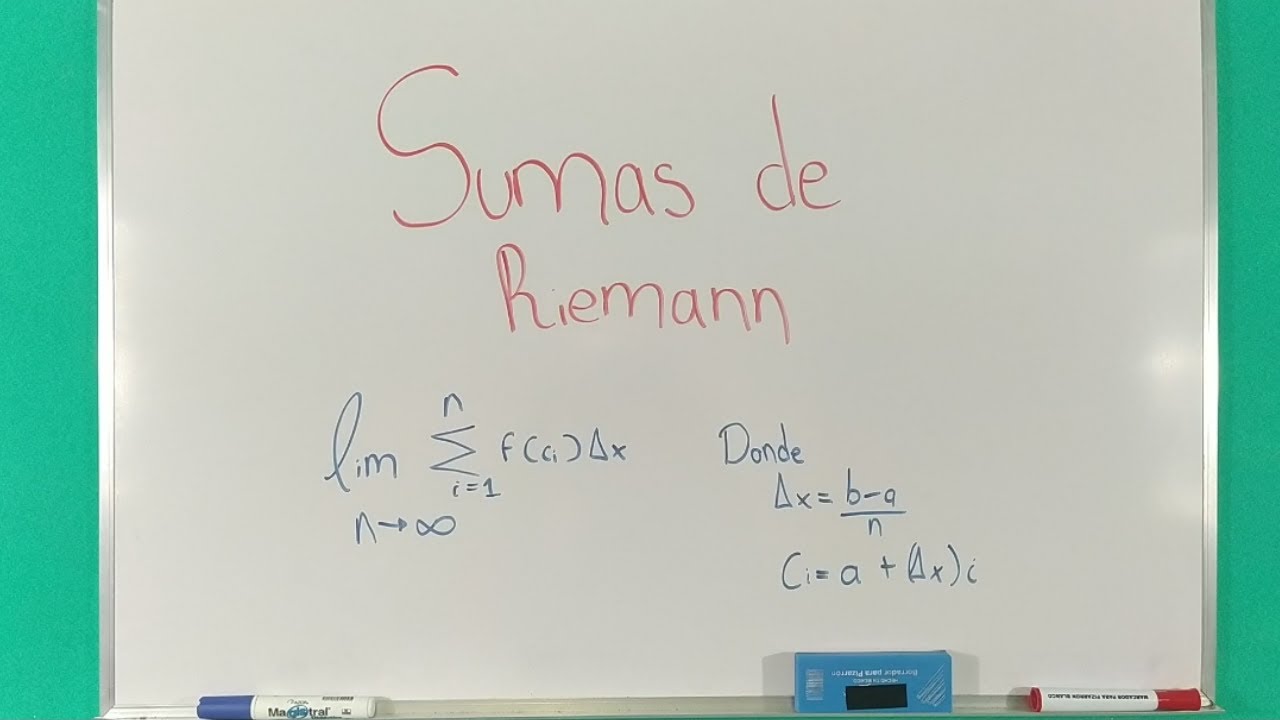 Sumas de
Riemann
lim n→∞ n Σ i=1 f(ci)Δx
Donde
Δx = b-a/n
Ci = a + (Δx)i
Magistral
Borrador para Pizarrón
HECHO EN MÉXICO
MARCADOR PARA PIZARRON BLANCO